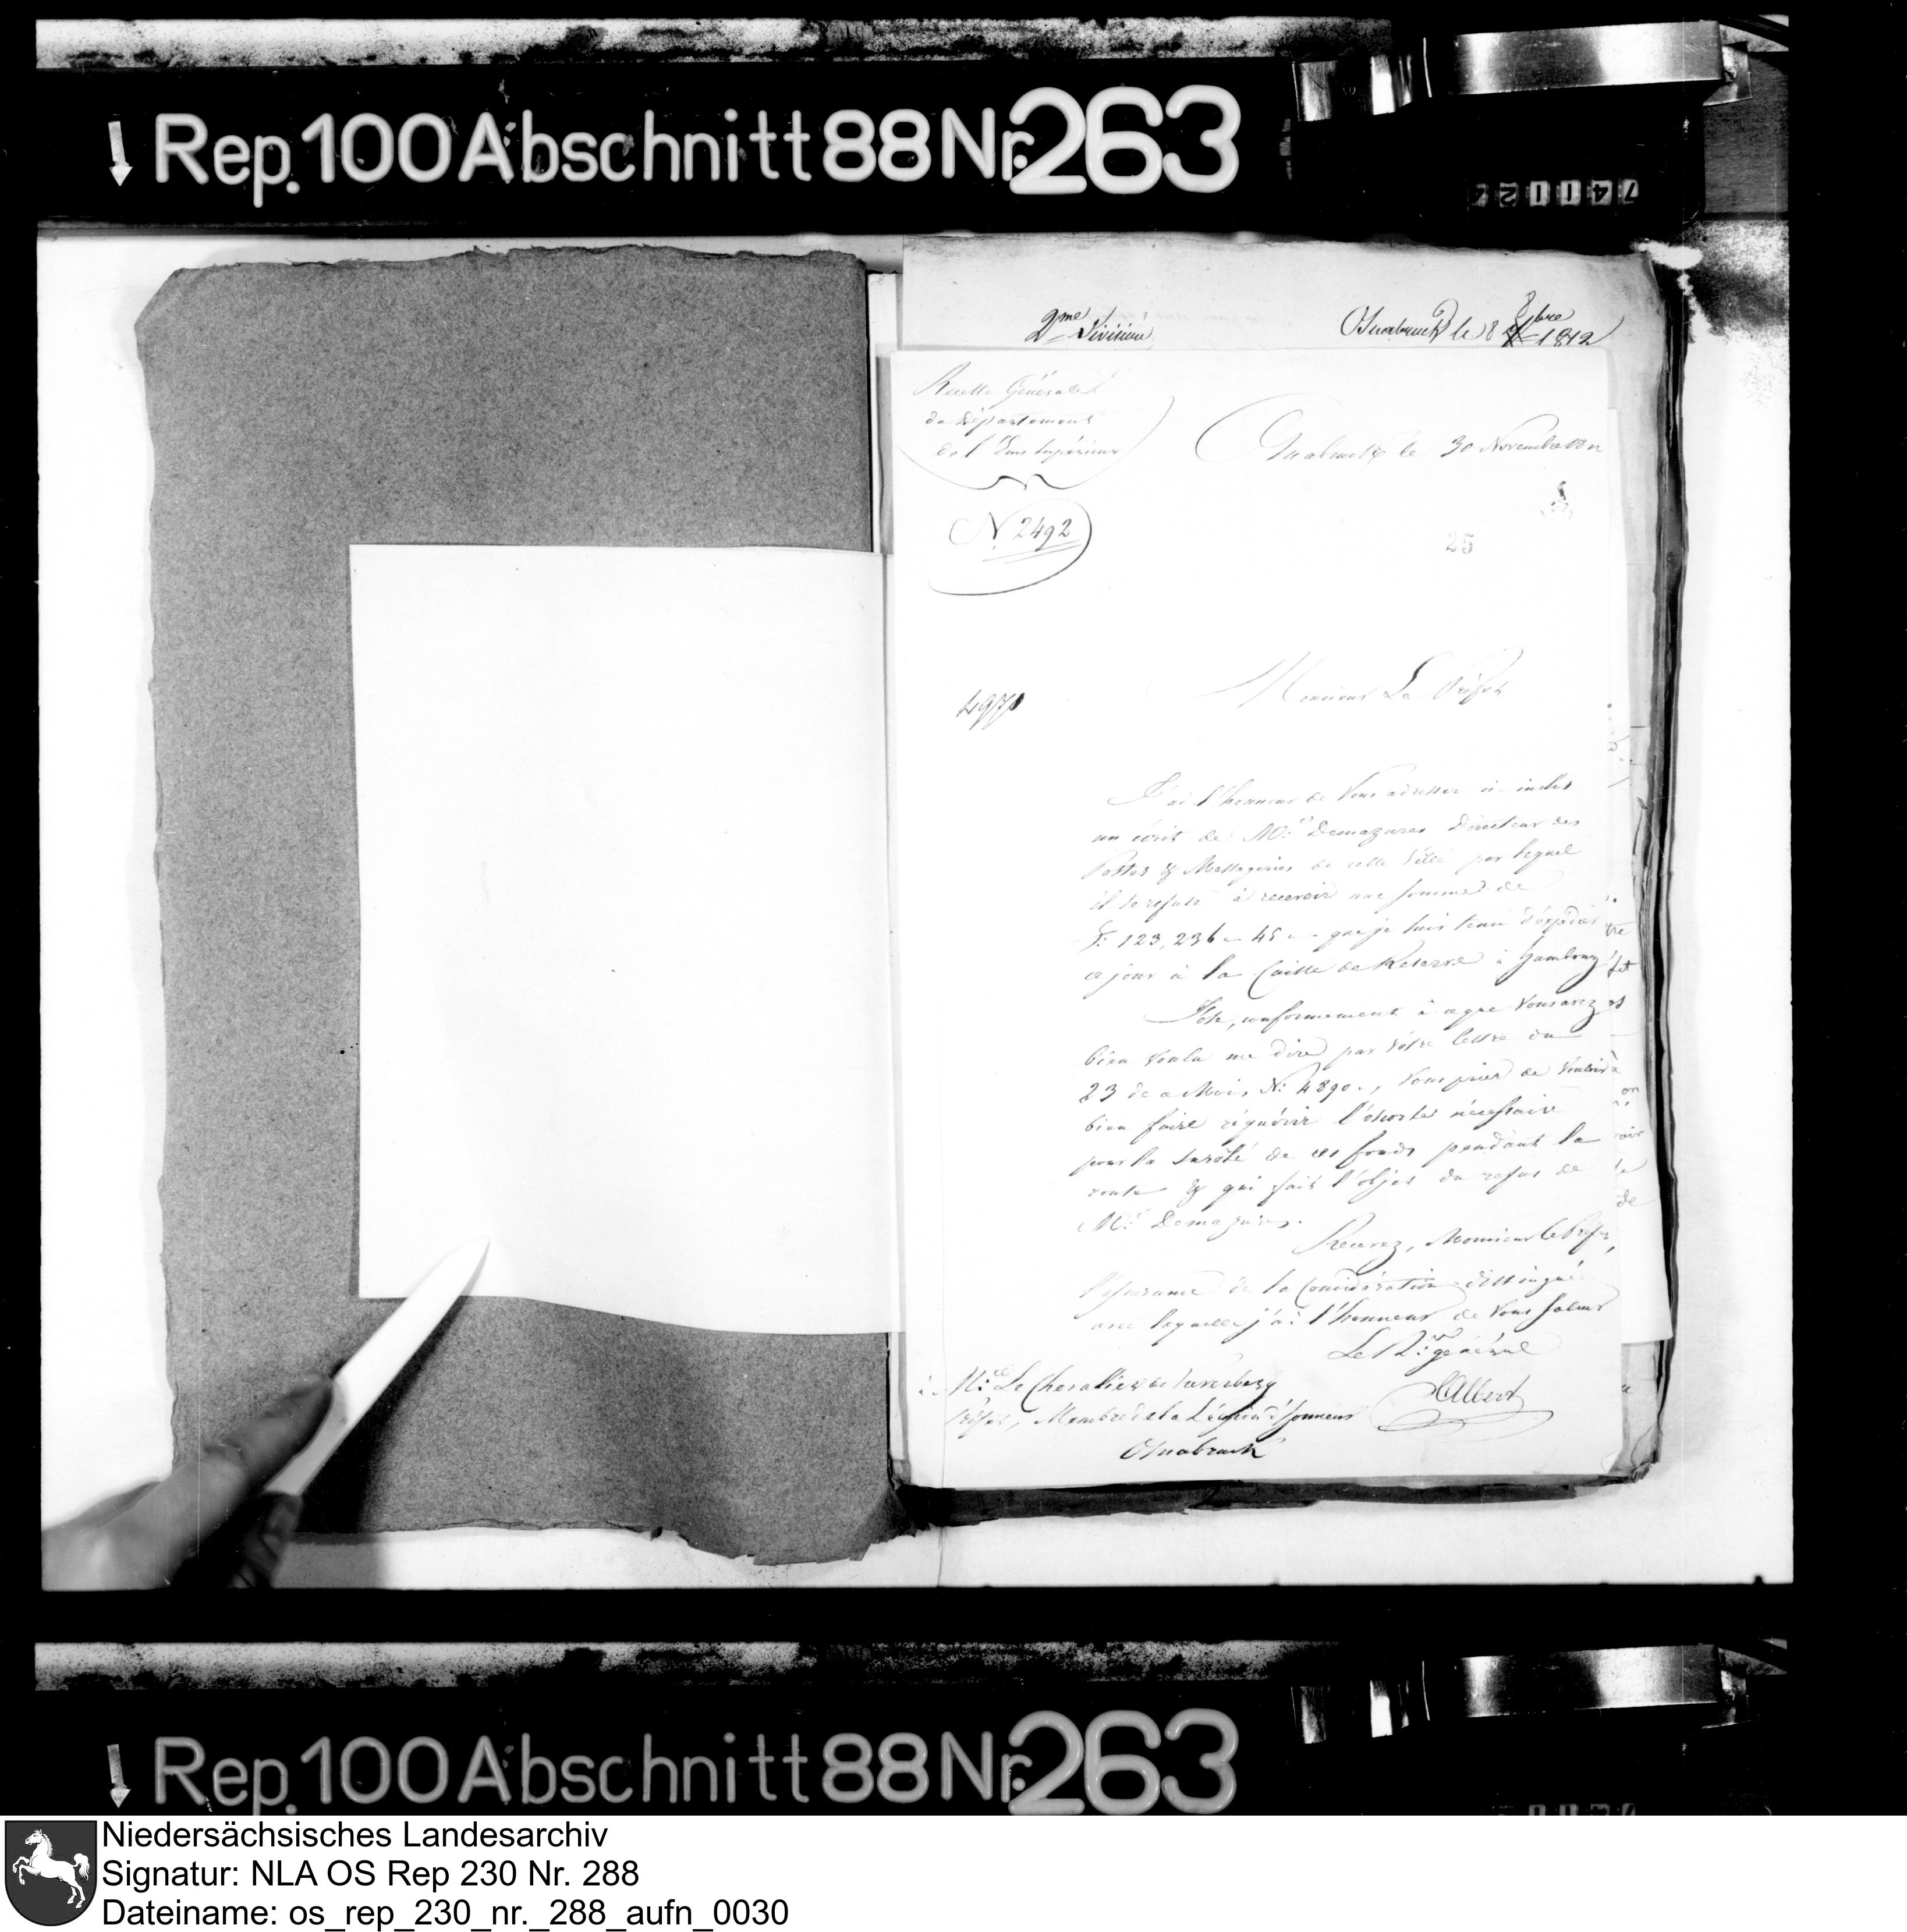 Rep. 100 Abschnitt 88 Nr. 263
741122
2me Division
Osnabruck le 8 Xbre 1812
Recette Générale
du Département
de l'Ems Supérieur
Osnabruck le 30 Novembre
N. 2492
25
4971
Monsieur Le Préfet
J'ai l'honneur de Vous adresser ci-inclus
un écrit de Mr. Demazures Directeur des
Postes & Messageries de cette Ville par lequel
il se refuse à recevoir une somme de
F. 123,236 - 45 - que je suis tenu d'expédier
ce jour à la Caisse de Réserve à Hambourg
J'ose, conformément à ce que Vous avez
bien voulu me dire par Vôtre lettre du
23 de ce Mois N: 4890, Vous prier de Vouloir
bien faire réquérir l'escorte nécessaire
pour la sureté de ces fonds pendant la
route & qui fait l'objet du refus de
Mr. Demazures.
Recevez, Monsieur le Préfet,
l'assurance de la Considération distinguée
avec laquelle j'ai l'honneur de Vous saluer
Le Rr. général
Albert
à Mr. Le Chevalier de Keverberg
Préfet, Membre de la Légion d'honneur
Osnabruck
Rep. 100 Abschnitt 88 Nr. 263
Niedersächsisches Landesarchiv
Signatur: NLA OS Rep 230 Nr. 288
Dateiname: os_rep_230_nr._288_aufn_0030